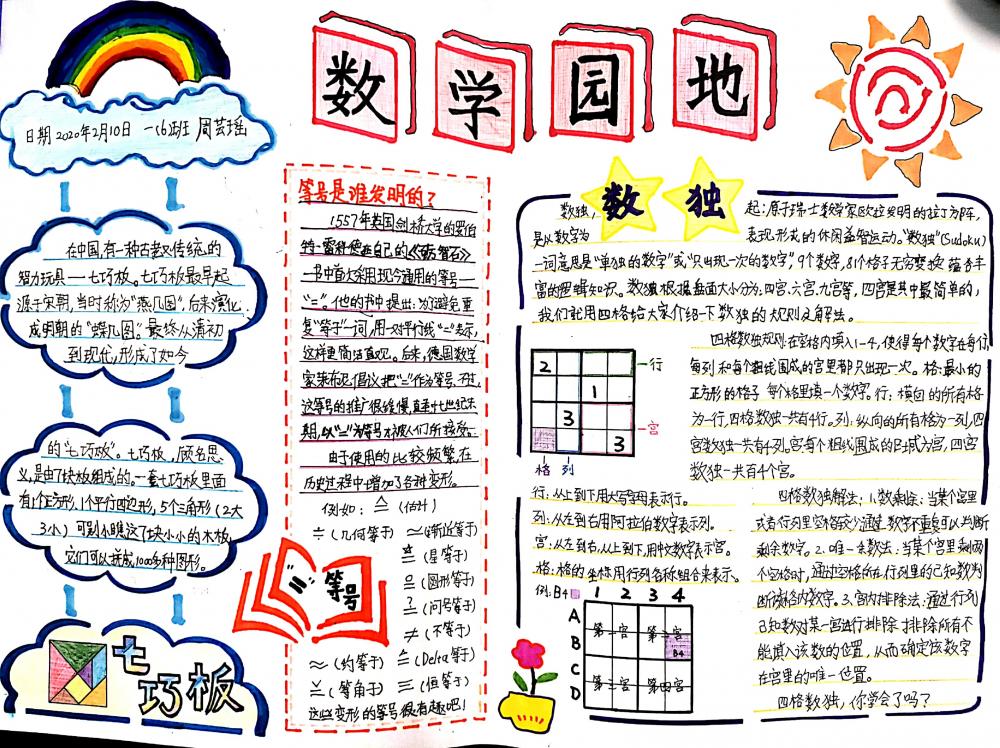 数学园地
日期2020年2月10日 一(6)班 周芸瑶
在中国,有一种古老又传统的
智力玩具——七巧板。七巧板最早起
源于宋朝,当时称为“燕几图”,后来演化
成明朝的“蝶几图”最终从清初
到现代,形成了如今
的“七巧板”。七巧板,顾名思
义,是由7块板组成的。一套七巧板里面
有1个正方形,1个平行四边形,5个三角形(2大
3小)可别小瞧这7块小小的木板,
它们可以拼成1000多种图形。
七
巧板
等号是谁发明的?
1557年英国剑桥大学的罗伯
特·雷科德在自己的《砺智石》
一书中首次采用现今通用的等号——
“=”。他的书中提出:为避免重
复“等于”一词,用一对平行线“=”表示,
这样更简洁直观。后来,德国数学
家莱布尼倡议把“=”作为等号,不过,
这等号的推广很缓慢,直到十七世纪末
期,以“=”为等号才被人们所接受。
由于使用的比较频繁,在
历史过程中增加了各种变形。
例如:≙(估计)
≑(几何等于) ≈(渐近等于)
≛(星等于)
(圆形等于)
≟(问号等于)
≠(不等于)
≈(约等于) ≜(Delta等于)
≚(等角于) ≡(恒等于)
这些变形的等号很有趣吧!
“=”等号
数独
数独, 起:源于瑞士数学家欧拉发明的拉丁方阵,
是以数字为 表现形式的休闲益智运动。“数独”(Sudoku)
一词意思是“单独的数字”或“只出现一次的数字”,9个数字,81个格子无穷变换,蕴含丰
富的逻辑知识。数独根据盘面大小分为:四宫、六宫、九宫等,四宫是其中最简单的,
我们就用四格给大家介绍一下数独的规则及解法。
2
1
3
3
行
宫
格 列
四格数独规则:在空格内填入1-4,使得每个数字在每行,
每列和每个粗线围成的宫里都只出现一次。格:最小的
正方形的格子,每个格里填一个数字。行:横向的所有格
为一行,四格数独一共有4行。列:纵向的所有格为一列,四
宫数独一共有4列。宫:每个粗线围成的区域为宫,四宫
数独一共有4个宫。
行:从上到下用大写字母表示行。
列:从左到右用阿拉伯数字表示列。
宫:从左到右,从上到下,用中文数字表示宫。
格:格的坐标用行列名称组合来表示。
例:B4
1 2 3 4
A
B
C
D
第一宫 第二宫
B4
第三宫 第四宫
四格数独解法:1.数剩除:当某个宫里
或者行列里空格较少,通过数字不重复可以判断
剩余数字。2.唯一余数法:当某个宫里剩两
个空格时,通过空格所在行列里的已知数判
断该格内数字。3.宫内排除法:通过行列
已知数对某一宫进行排除,排除所有不
能填入该数的位置,从而确定该数字
在宫里的唯一位置。
四格数独,你学会了吗?